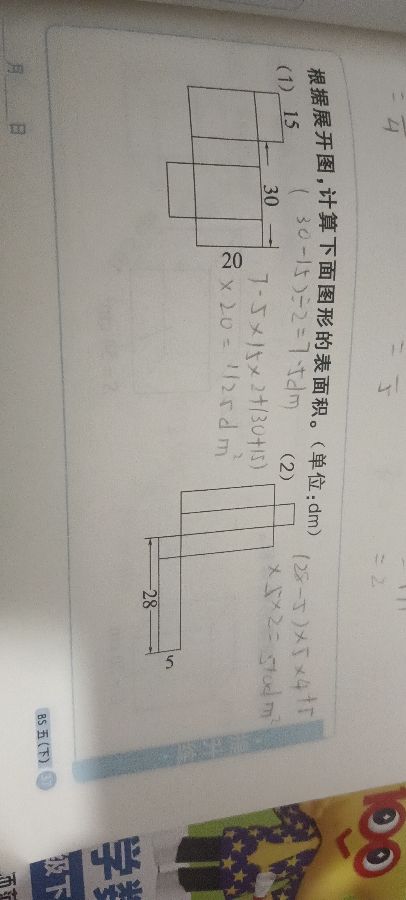 根据展开图，计算下面图形的表面积。（单位：dm）
(1)
15
30
20
(30-15)÷2=7.5dm
7.5×15×2+(30+15)
×20=1125dm²
(2)
28
5
(28-5)×5×4+5
×5×2=510dm²
提升练
BS 五(下)
月 日
学
级下
100